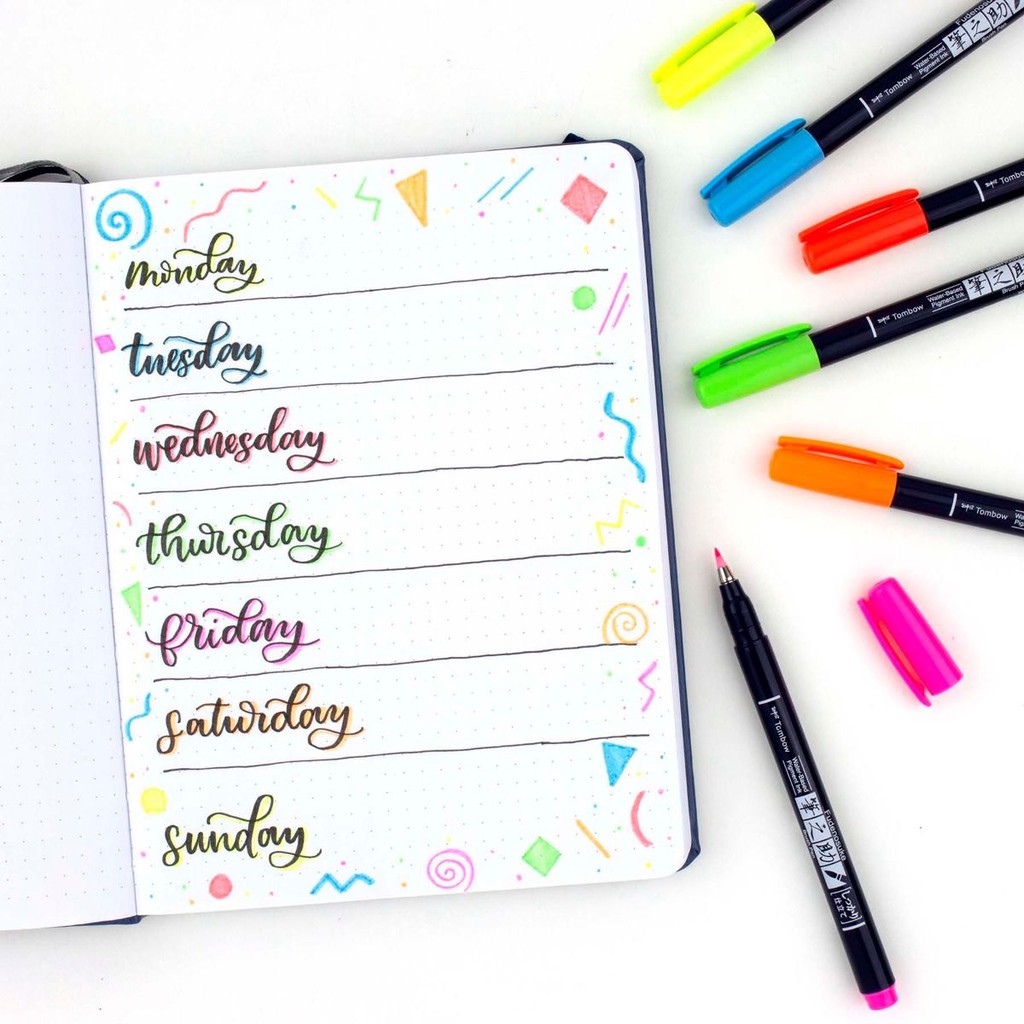 monday
tuesday
wednesday
thursday
friday
saturday
sunday
Fudenosuke
筆之助
Brush Pen
Water-Based
Pigment Ink
Tombow
Tombow
Fudenosuke
筆之助
Brush Pen
Water-Based
Pigment Ink
Tombow
Tombow
Tombow
Water-Based
Pigment Ink
筆之助
Fudenosuke